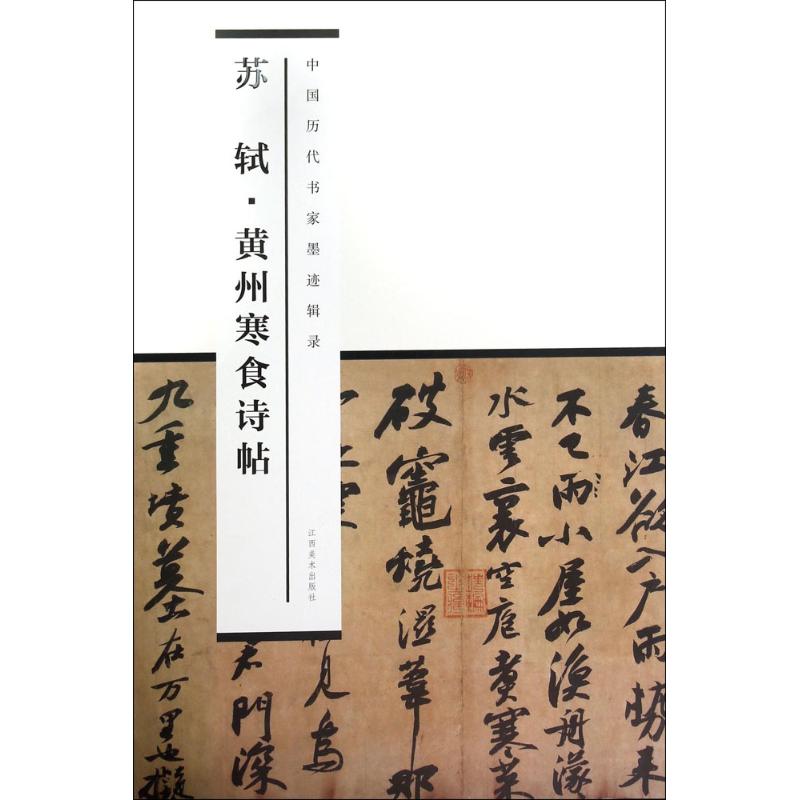 苏轼·黄州寒食诗帖
中国历代书家墨迹辑录
江西美术出版社
春江欲入户雨势来
不已雨小屋如漁舟濛
水雲裏空庖煮寒菜
破竈燒濕葦那
見烏
君門深
九重墳墓在万里也擬